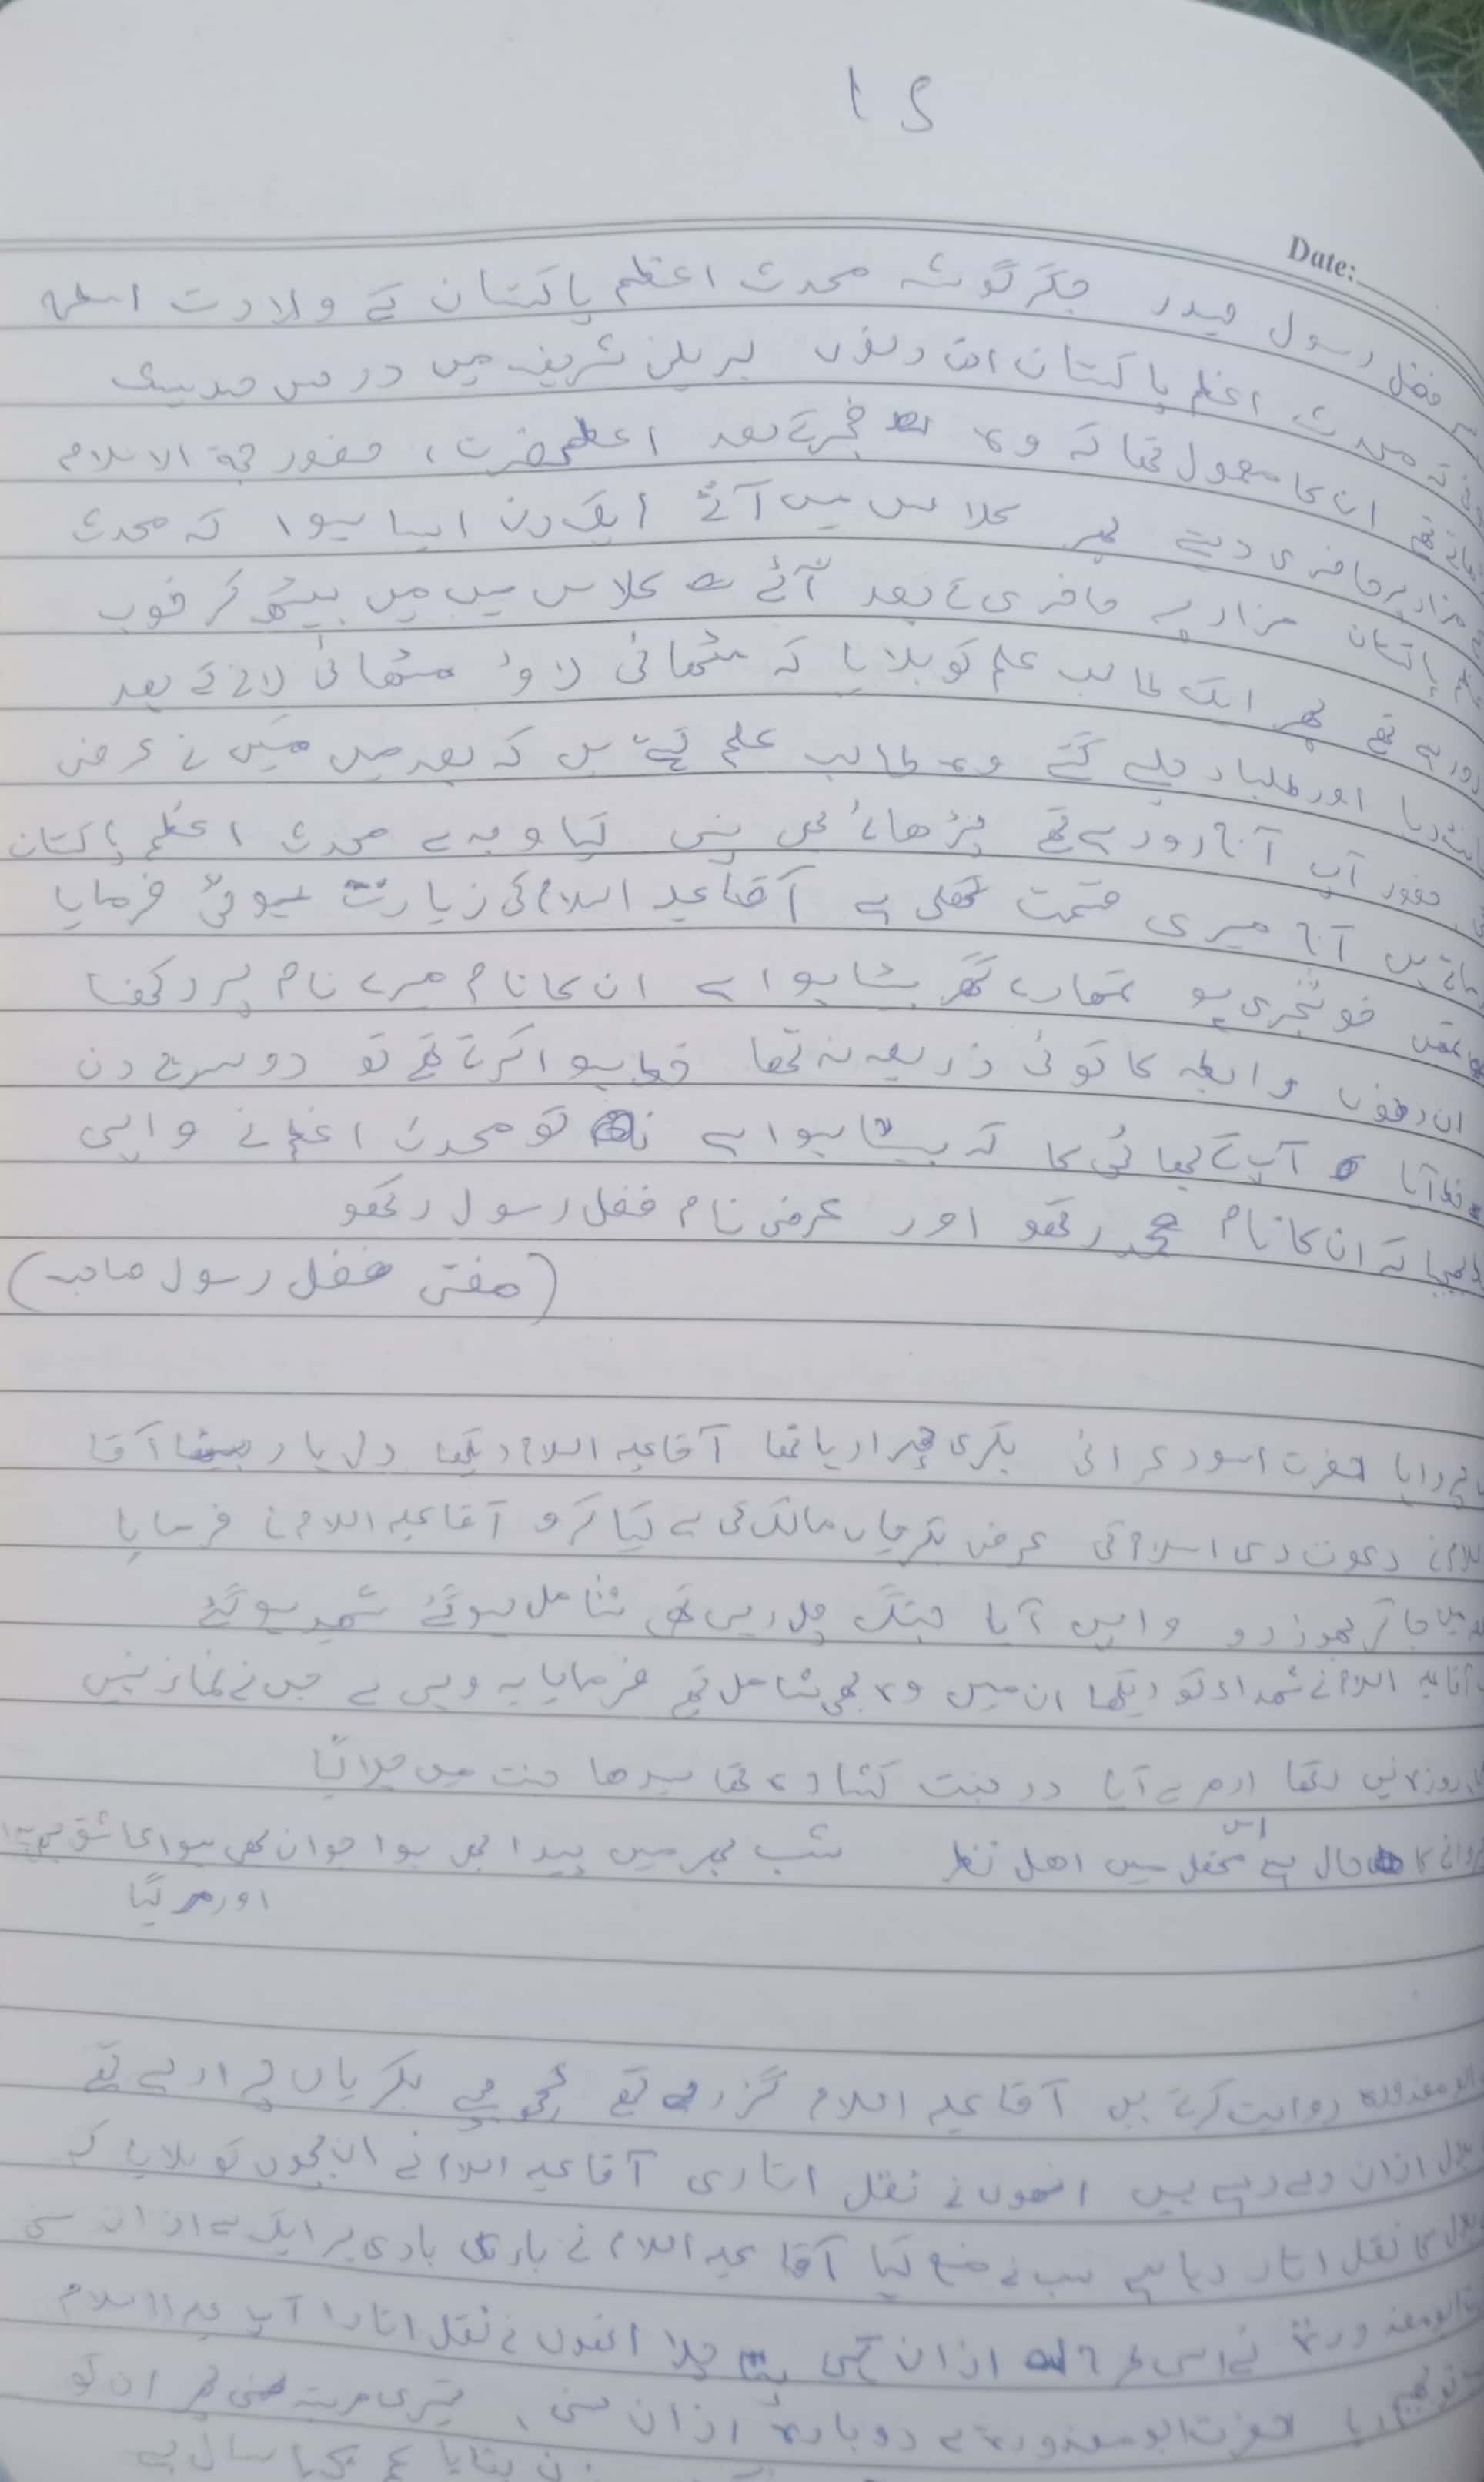 15
Date:
فضل رسول حیدر جگر گوشہ محدث اعظم پاکستان کے ولادت اسطرح
محدث اعظم پاکستان ان دنوں بریلی شریف میں درس حدیث
ان کا معمول تھا کہ وہ فجر کے بعد اعلحضرت، حضور حجۃ الاسلام
مزار پر حاضری دیتے پھر کلاس میں آتے ایک دن ایسا ہوا کہ محدث
پاکستان مزار پے حاضری کے بعد آئے کلاس میں میں بیٹھ کر خوب
رو رہے تھے پھر ایک طالب علم کو بلایا کہ مٹھائی لاؤ مٹھائی لانے کے بعد
دیا اور طلباء چلے گئے وہ طالب علم کہتے ہیں کہ بعد میں میں نے عرض
حضور آپ آج رو رہے تھے پڑھائے بھی نہیں کیا وجہ ہے محدث اعظم پاکستان
آج میری قسمت کھلی ہے آقا علیہ السلام کی زیارت ہوئی فرمایا
تمھیں خوشخبری ہو تمھارے گھر بیٹا ہوا ہے ان کا نام میرے نام پر رکھنا
ان دنوں رابطہ کا کوئی ذریعہ نہ تھا خط ہوا کرتے تھے تو دوسرے دن
خط آیا آپ کے بھائی کا کہ بیٹا ہوا ہے تو محدث اعظم نے واپس
بھیجا کہ ان کا نام محمد رکھو اور عرض نام فضل رسول رکھو
(مفتی فضل رسول صاحب)
حضرت اسود عرائی بکری چرا رہا تھا آقا علیہ السلام دیکھا دل ہار بیٹھا آقا
دعوت دی اسلام کی عرض بکریاں مالک کی ہے کیا کرو آقا علیہ السلام نے فرمایا
جا کر چھوڑ دو واپس آیا جنگ چل رہی تھی شامل ہو گئے شھید ہو گئے
السلام نے شھداء کو دیکھا ان میں وہ بھی شامل تھے فرمایا یہ وہی ہے جس نے نماز نہیں
روزہ نہیں رکھا ادھر سے آیا در جنت کشادہ تھا سیدھا جنت میں چلا گیا
حال ہے اس محفل میں اھل نظر شب بھر میں پیدا بھی ہوا جوان بھی ہوا عاشق بھی ہوا
اور مر گیا
روایت کرتے ہیں آقا علیہ السلام گزر رہے تھے کچھ بچے بکریاں چرا رہے تھے
اذان دے رہے ہیں انھوں نے نقل اتاری آقا علیہ السلام نے ان بچوں کو بلایا کہ
نقل اتار رہا ہے سب نے منع کیا آقا علیہ السلام نے باری باری ہر ایک سے اذان سنی
نے اسی طرح اذان کہی پتا چلا انھوں نے نقل اتارا آپ علیہ السلام
حضرت ابو محذورہ سے دوبارہ اذان سنی، تیسری مرتبہ سنی پھر ان کو
بتایا